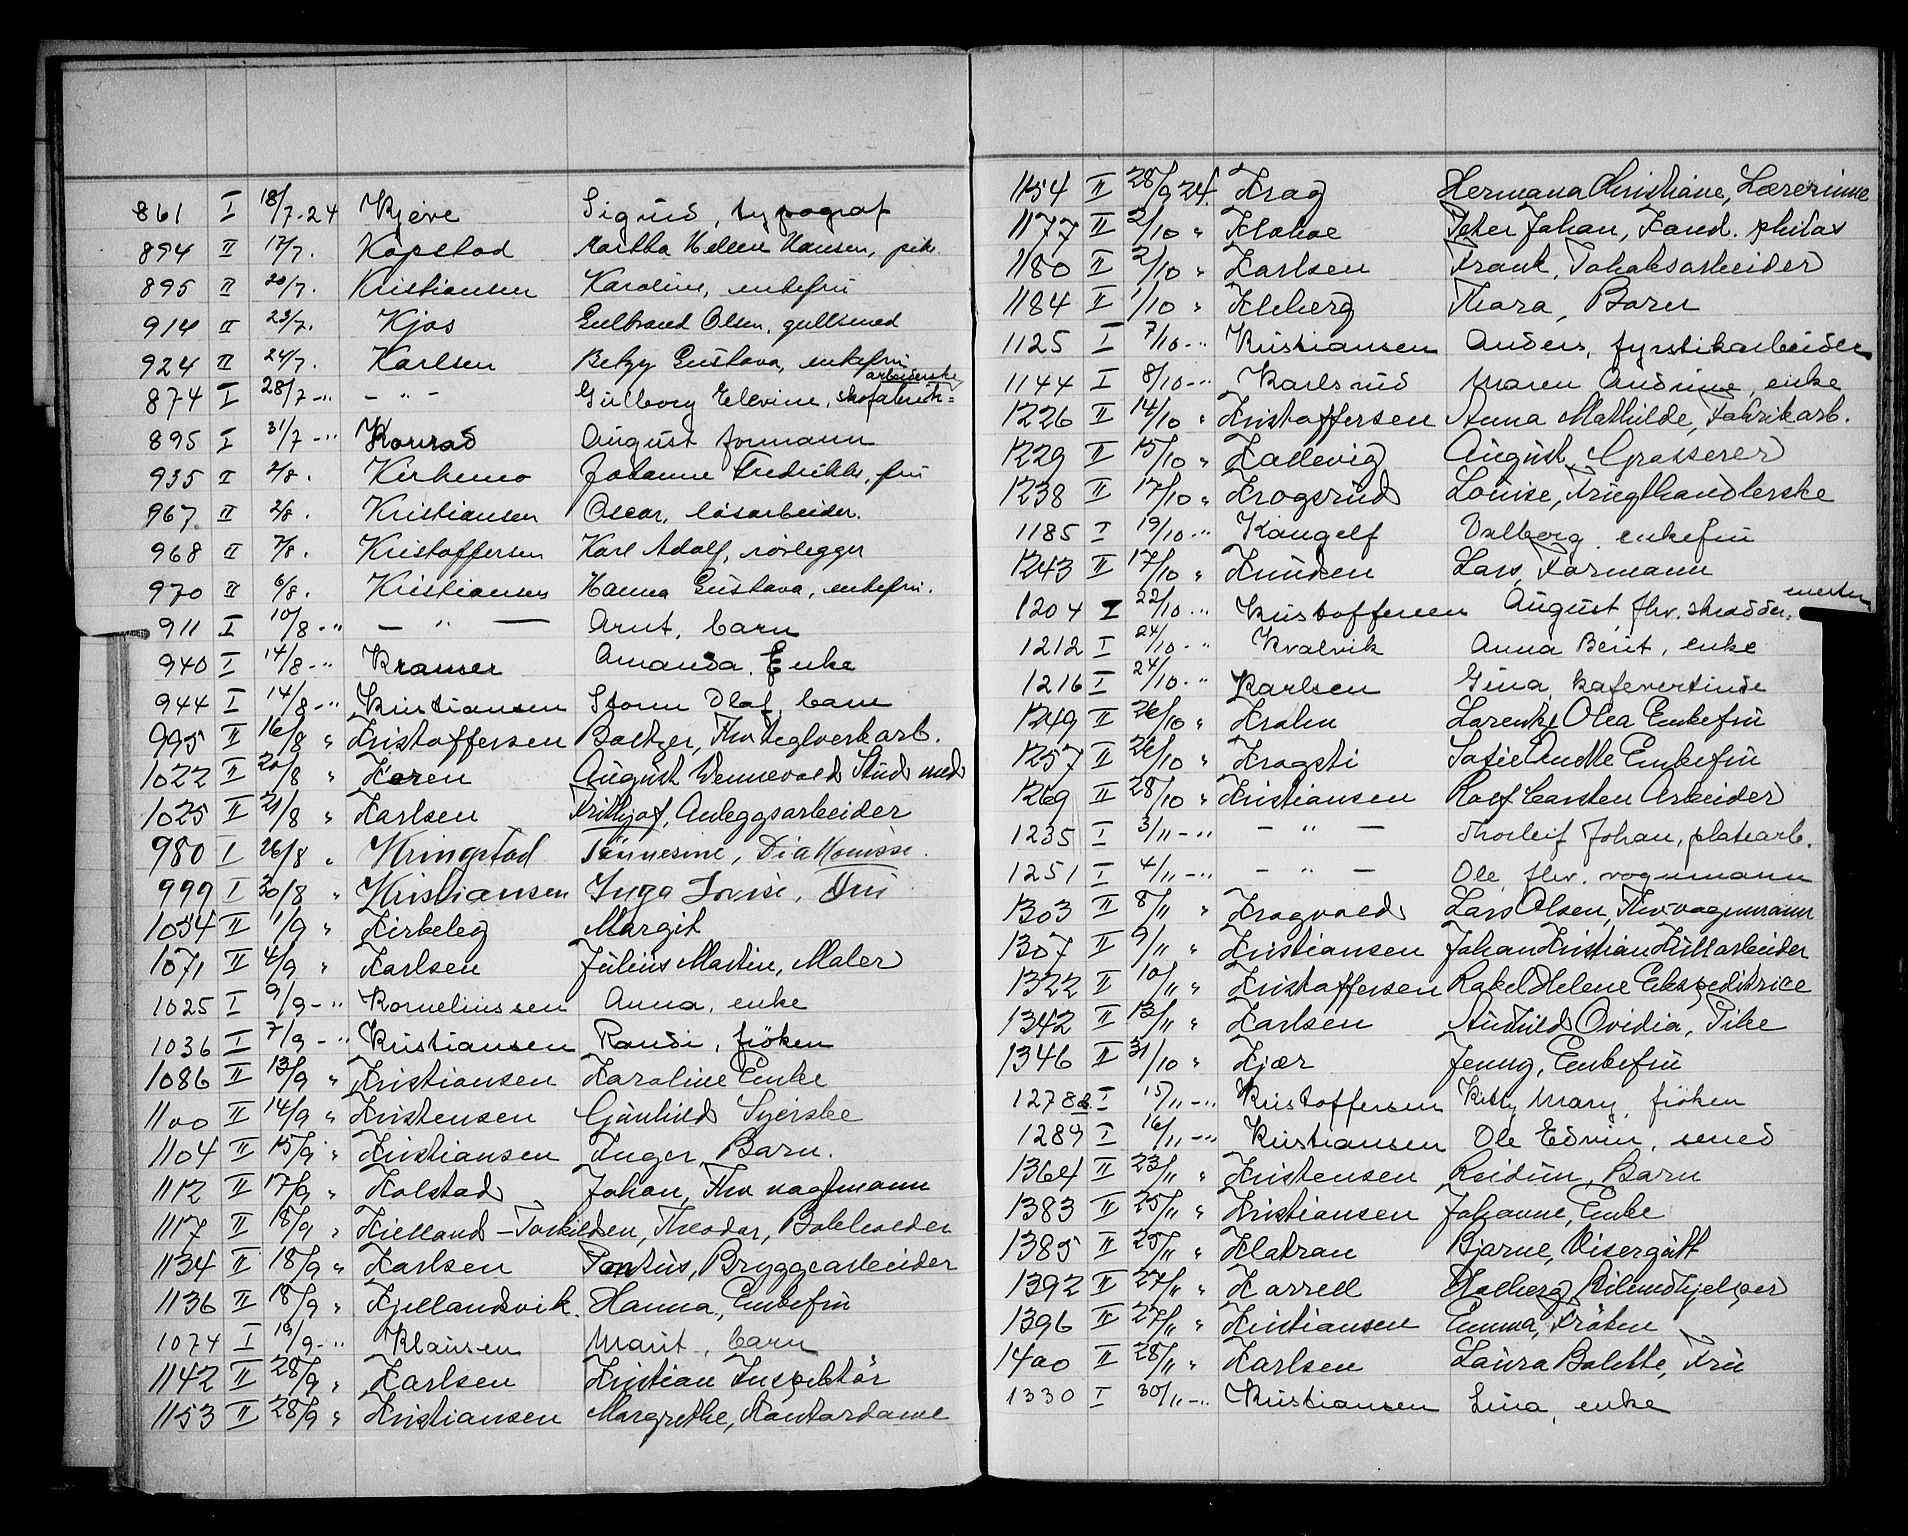 861 I 18/7-24 Kjøve Sigurd, typograf
894 II 17/7. Kopstad Martha Helene Hansen, pike
895 II 20/7. Kristiansen Karoline, enkefru
914 II 23/7. Kjos Gulbrand Olsen, gullsmed
924 II 24/7. Karlsen Betzy Gustava, enkefru
874 I 28/7-" - " - Gulborg Elevine, skofabrik= arbeiderske
895 I 31/7-" Konrad August formann
935 II 2/8. Kirkemo Johanne Fredrikke, fru
967 II 2/8. Kristiansen Oscar, løsarbeider.
968 II 7/8. Kristoffersen Karl Adolf, rørlegger
970 II 6/8. Kristiansen Hanna Gustava, enkefru.
911 I 10/8-" - " - Arnt, barn
940 I 14/8-" Kramer Amanda, Enke
944 I 14/8-" Kristiansen Storm Olaf, barn
995 II 16/8 " Kristoffersen Boltzer, Fhv Teglverkarb.
1022 II 20/8 " Koren August Wennevold Stud med
1025 II 21/8 " Karlsen Frithjof, Anleggsarbeider
980 I 26/8 " Kringstad Tønnesine, Diakonisse.
999 I 30/8 " Kristiansen Inga Lovise, Fru
1054 II 1/9 " Kirkeleg Margit
1071 II 4/9 " Karlsen Julius Martin, Maler
1025 I 9/9-" Korneliussen Anna, enke
1036 I 7/9-" Kristiansen Randi, frøken
1086 II 13/9 " Kristiansen Karoline Enke
1100 II 14/9 " Kristensen Gunhild Syerske
1104 II 15/9 " Kristiansen Inger, Barn.
1112 II 17/9 " Kolstad Johan, Fhv vognmann
1117 II 18/9 " Kielland-Torkildsen, Theodor, Bokholder
1134 II 18/9 " Karlsen Pontus, Bryggearbeider
1136 II 18/9 " Kjellandsvik. Hanna, Enkefru
1074 I 19/9-" Klausen Marit, barn
1142 II 28/9 " Karlsen Kristian Inspektør
1153 II 28/9 " Kristiansen Margrethe, Kontordame
1154 II 28/9 24. Krag Hermana Kristiane, Lærerinne
1177 II 2/10 " Klohoe Peter Johan, Kand. philos
1180 II 2/10 " Karlsen Frank, Tobaksarbeider
1184 II 1/10 " Kleberg Thora, Barn
1125 I 7/10-" Kristiansen Anders, fyrstikarbeider
1144 I 8/10-" Karlsrud Maren Andrine, enke
1226 II 14/10 " Kristoffersen Anna Mathilde, Fabrikarb.
1229 II 15/10 " Kallevig August, Grosserer
1238 II 17/10 " Krogsrud Louise, Frugthandlerske
1185 I 19/10-" Kangelf Valborg, enkefru
1243 II 17/10 " Knudsen Lars, Formann
1204 I 22/10-" Kristoffersen August, fhv. skrædder= mester
1212 I 24/10-" Kvalvik Anna Berit, enke
1216 I 24/10-" Karlsen Gina, kafevertinde
1249 II 26/10 " Krohn Lorentze Olea Enkefru
1257 II 26/10 " Krogsti Sofie Enkefru
1269 II 28/10 " Kristiansen Rolf Carsten Arbeider
1235 I 3/11-" - " - Thorleif Johan, platearb.
1251 I 4/11-" - " - Ole, fhv. vognmann
1303 II 8/11 " Krogvold Lars Olsen, Fhv vognmann
1307 II 9/11 " Kristiansen Johan Kristian Kullarbeider
1322 II 10/11 " Kristoffersen Rakel Helene Ekspeditrice
1342 II 13/11 " Karlsen Audhild Ovidia, Pike
1346 II 31/10 " Kjær Jenny, Enkefru
1278a I 15/11-" Kristoffersen Kitty Mary, frøken
1289 I 16/11-" Kristiansen Ole Edvin, smed
1364 II 23/11 " Kristensen Reidun, Barn
1383 II 25/11 " Kristiansen Johanne, Enke
1385 II 25/11 " Klatran Bjarne, Visergutt
1392 II 27/11 " Karrell Holberg,
1396 II 27/11 " Kristiansen Emma, Frøken
1400 II 28/11 " Karlsen Laura Bolette, Fru
1330 I 30/11-" Kristiansen Lina, enke